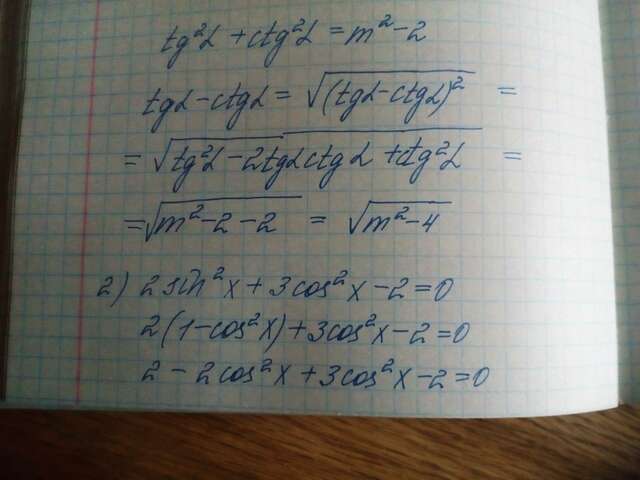 tg²α + ctg²α = m² - 2
tgα - ctgα = √(tgα - ctgα)² =
= √tg²α - 2tgα ctgα + ctg²α =
= √m² - 2 - 2 = √m² - 4
2) 2 sin²x + 3cos²x - 2 = 0
2(1 - cos²x) + 3cos²x - 2 = 0
2 - 2cos²x + 3cos²x - 2 = 0